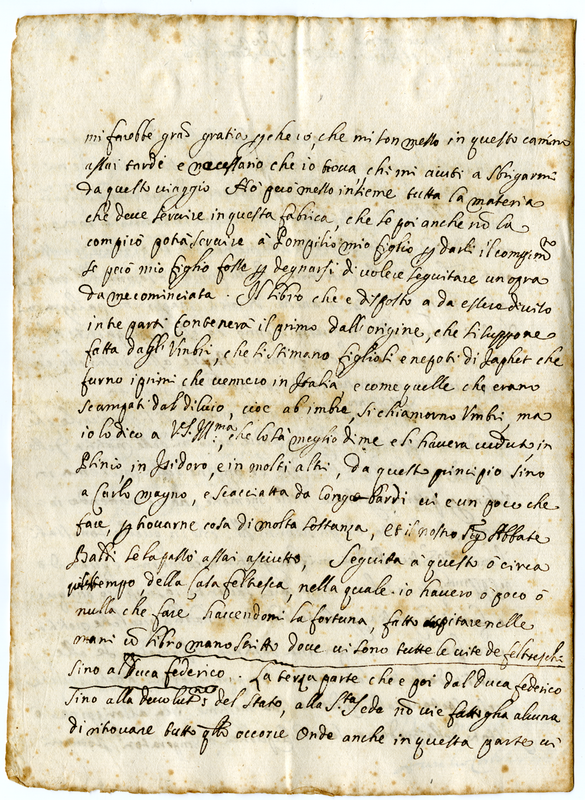 mi farebbe gran gratia perche io, che mi son messo in questo camino
assai tardi e necessario che io trova, chi mi aiuti a sbrigarmi
da questo viaggio Hò però messo insieme tutta la materia
che deve servire in questa fabrica, che se poi anche nõ la
compirò potrà servire à Pompilio mio figlio per darli il compimto
se però mio figlio fosse per degnarsi di volere seguitare un opra
da me cominciata. Il libro che e disposto a da essere diviso
in tre parti Contenerà il primo dall'origine, che si suppone
fatta dagli Vmbri, che si stimano figlioli e nepoti di Japhet che
furno i primi che vennero in Italia e come quelle che erano
scampati dal diluvio, cioe ab imbre, si chiamorno Vmbri, ma
io lo dico a V.S. Ill.ma, che lo sà meglio di me e li havera veduto in
Plinio in Isidoro, e in molti altri, da questo principio sino
a Carlo magno, e scacciatta da Longobardi vi e un poco che
fare, per trovarne cosa di molta sostanza, et il nostro Sig. Abbate
Baldi se la passò assai asciutto, Seguita à questo ò circa
tempo della Casa feltresca, nella quale io haverò ò poco ò
nulla che fare havendomi la fortuna, fatto capitare nelle
mani un libro manoscritto dove vi sono tutte le vite de feltreschi
sino al Duca federico. La terza parte che e poi dal Duca federico
sino alla devolutne del Stato, alla Sta Sede nõ vi e fattigha alcuna
di ritrovare tutto qllo occorre Onde anche in questa parte vi